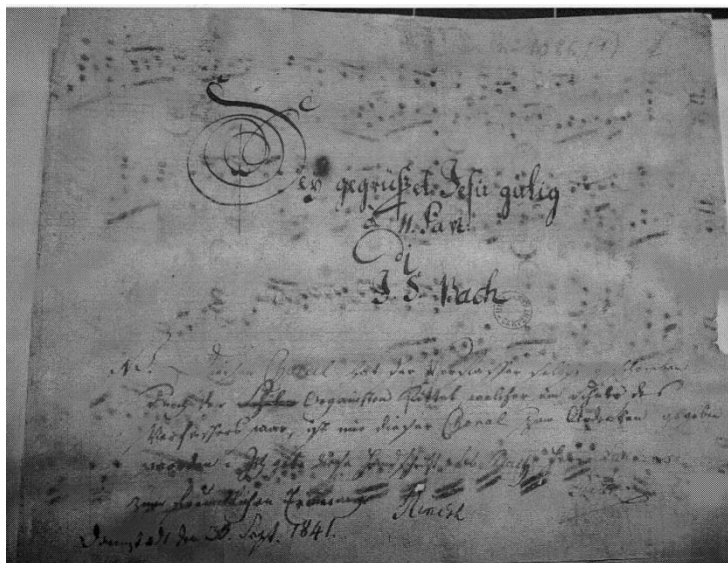 Sey gegrüßet Jesu gütig
à 11. Part.
di
J. S. Bach
NB. Diesen Choral hat der Verfasser selbst geschrieben
Durch der Schüler Organisten Kittel welcher ein Schüler des
Verfassers war, ist mir dieser Choral zum Andenken gegeben
worden. Ich diese Handschrift
zur freundlichen Erinnerung Rinck
Darmstadt den 30. Sept. 1841.